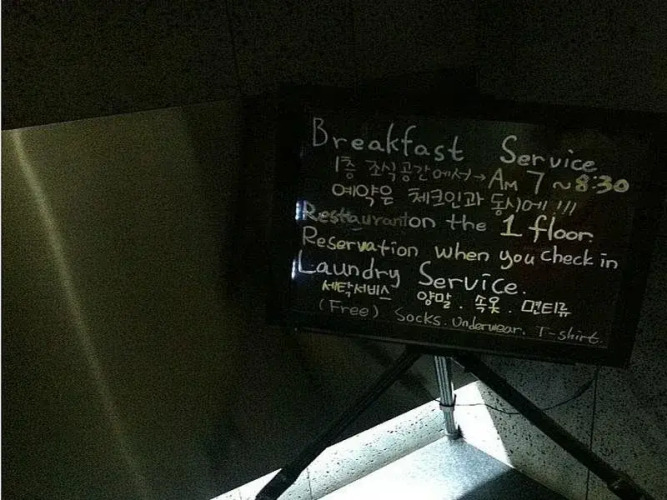 Breakfast Service
1층 조식공간에서→ AM 7~8:30
예약은 체크인과 동시에!!!
Restaurant on the 1 floor.
Reservation when you check in
Laundry Service.
세탁서비스 양말. 속옷. 면티류
(Free) Socks. Underwear. T-shirt.